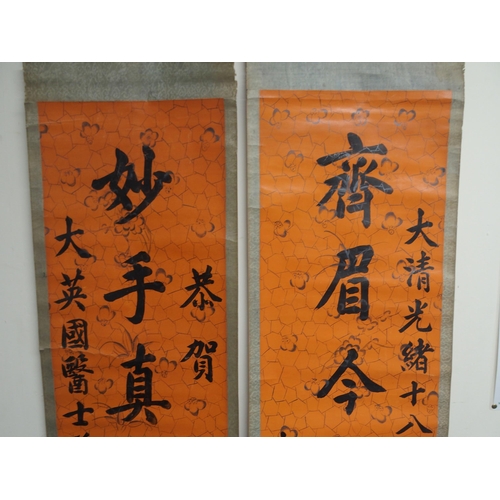 大清光緒十八
齊眉今
恭賀
妙手真
大英國醫士